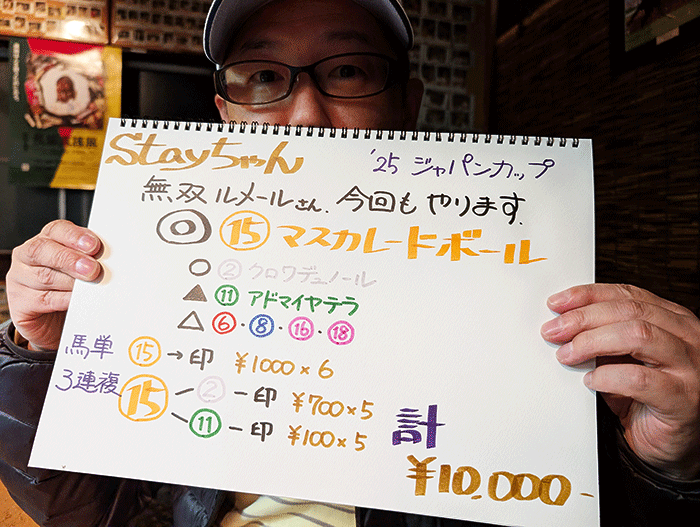 Stayちゃん '25 ジャパンカップ
無双ルメールさん、今回もやります。
◎ ⑮ マスカレードボール
○ ② クロワデュノール
▲ ⑪ アドマイヤテラ
△ ⑥・⑧・⑯・⑱
馬単 ⑮→印 ¥1000×6
3連複 ⑮-②-印 ¥700×5
-⑪-印 ¥100×5
計
¥10,000-